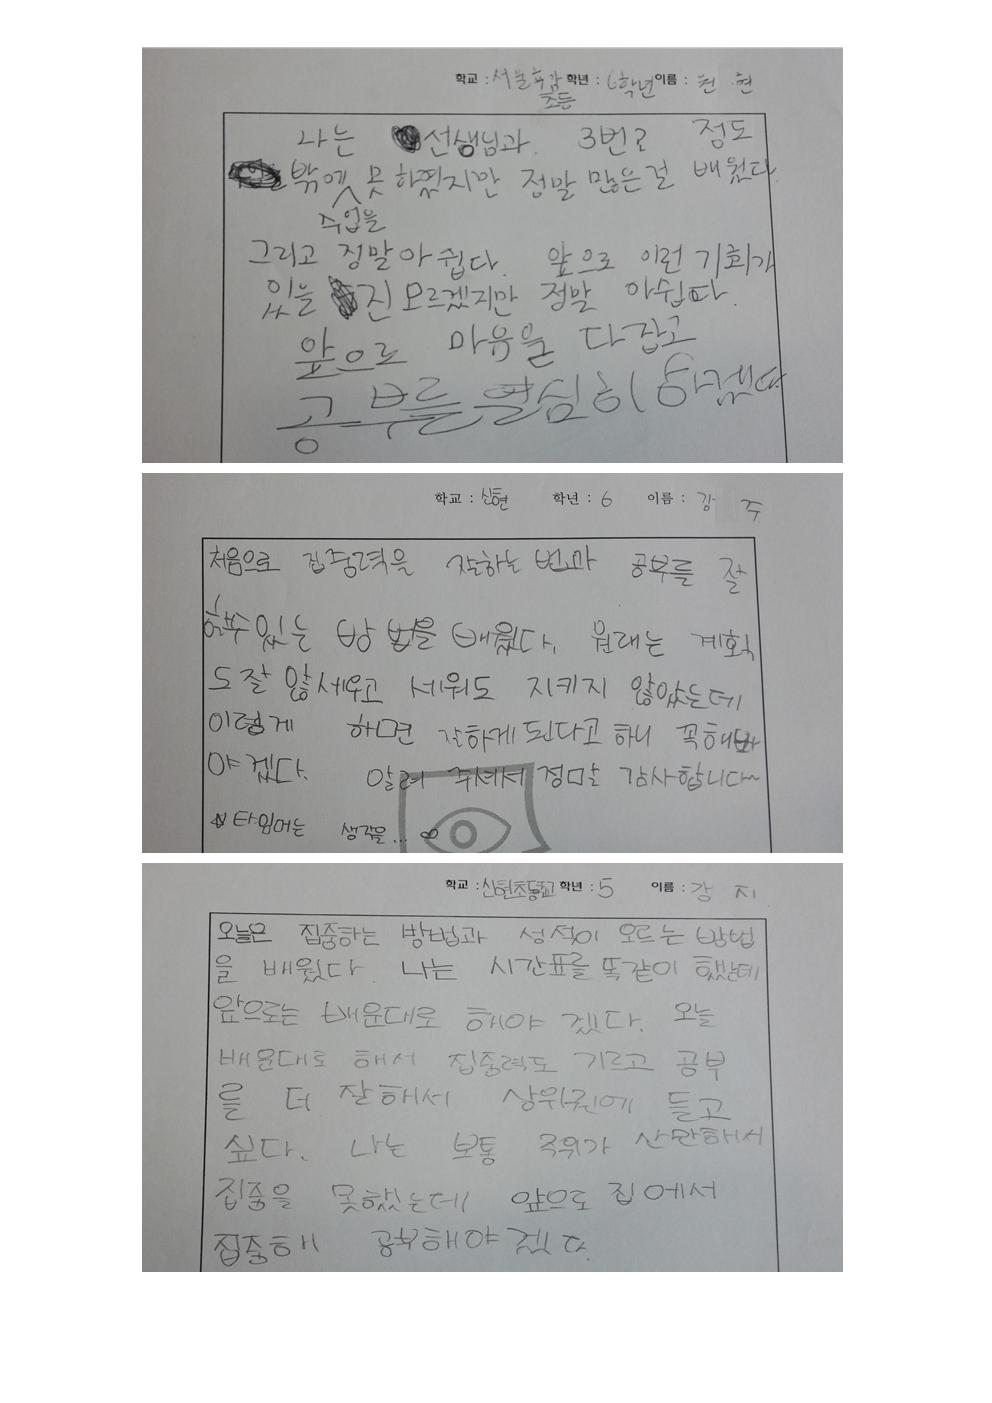 학교 : 서울 학년 : 6학년 이름 : 천 현
초등
나는 선생님과. 3번 정도
밖에 못 하였지만 정말 많은걸 배웠다.
수업을
그리고 정말 아쉽다. 앞으로 이런 기회가
있을 진 모르겠지만 정말 아쉽다.
앞으로 마음을 다잡고
공부를 열심히 하겠다
학교 : 신현 학년 : 6 이름 : 강 주
처음으로 집중력을 잘하는 법과 공부를 잘
할수있는 방법을 배웠다. 원래는 계획
도 잘 않세우고 세워도 지키지 않았는데
이렇게 하면 잘하게 된다고 하니 꼭해봐
야겠다. 알려 주셔서 정말 감사합니다~
생각을...
학교 : 신현초등학교 학년 : 5 이름 : 강 지
오늘은 집중하는 방법과 성적이 오르는 방법
을 배웠다. 나는 시간표를 똑같이 했는데
앞으로는 배운대로 해야 겠다. 오늘
배운대로 해서 집중력도 기르고 공부
를 더 잘해서 상위권에 들고
싶다. 나는 보통 주위가 산만해서
집중을 못했는데 앞으로 집에서
집중해 공부해야겠다.